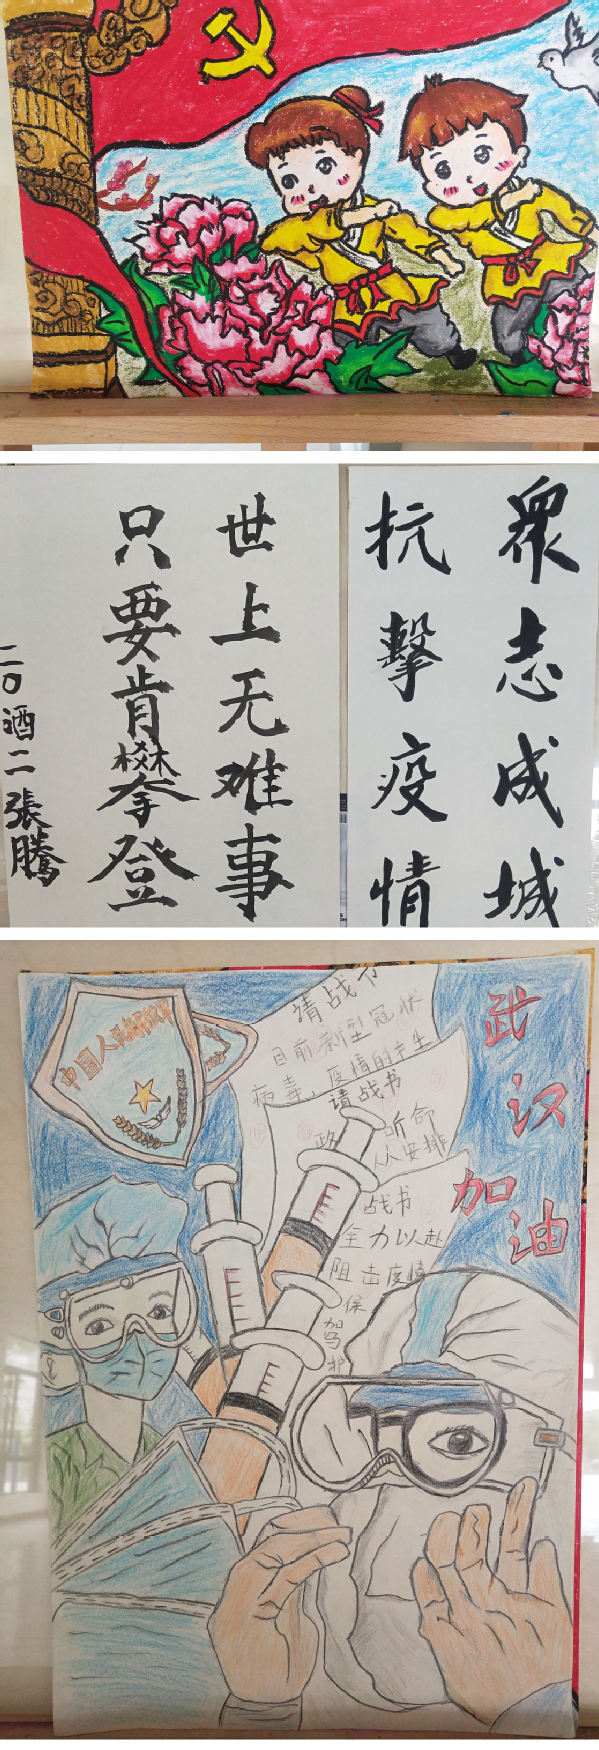 世上无难事
只要肯攀登
二〇酒二 張騰
衆志成城
抗擊疫情
中国人民解放军
请战书
目前新型冠状
病毒，疫情的产生
请战书
听命
政
从安排
战书
全力以赴
阻击疫情
保
加
武汉
加油